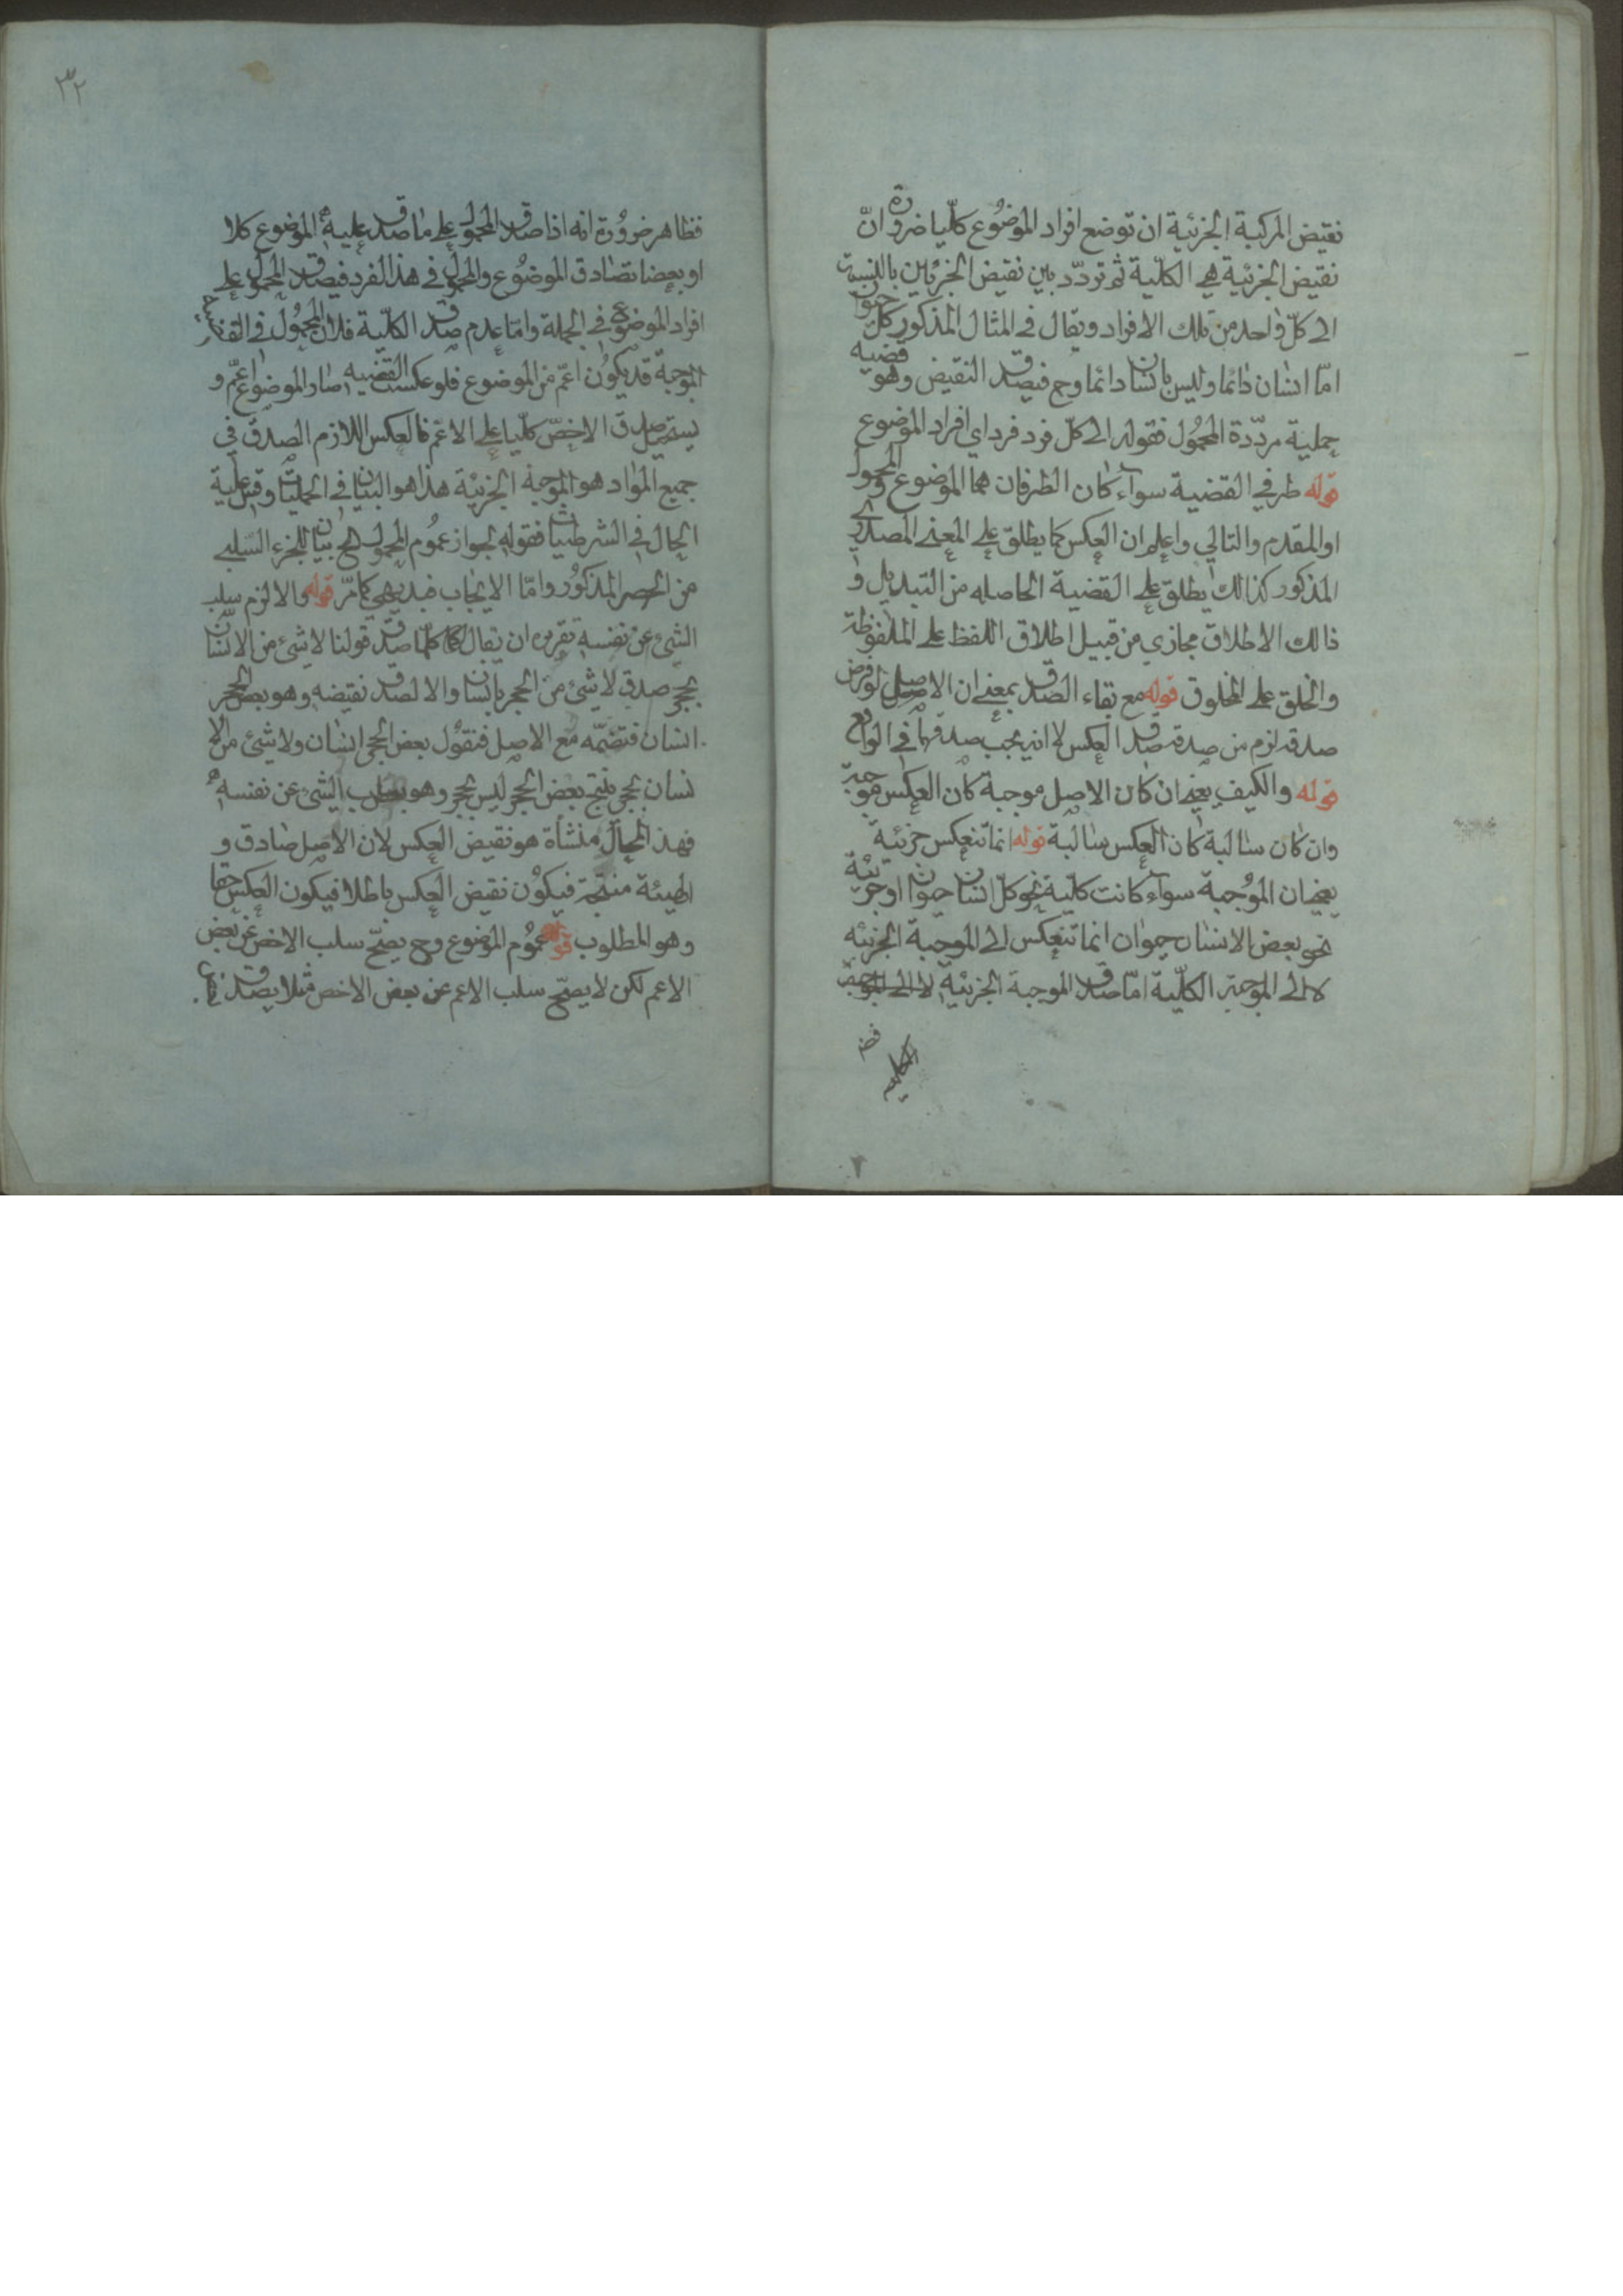 نقيض المركبة الجزئية ان توضع افراد الموضوع كلّيا ضرورة انّ
نقيض الجزئية هي الكلّية ثم تردّد بين نقيض الجزئين بالنسبة
الى كلّ واحد من تلك الافراد ويقال في المثال المذكور كلّ حيوان
امّا انسان دائما وليس بانسان دائما وح فيصدق النقيض وهو قضيه
حملية مردّدة المحمول فقوله الى كلّ فرد فرد اي افراد الموضوع
قوله طرفي القضية سوآء كان الطرفان هما الموضوع والمحول
او المقدم والتالي واعلم ان العكس كما يطلق على المعنى المصدري
المذكور كذالك يطلق على القضية الحاصله من التبديل و
ذالك الاطلاق مجازي من قبيل اطلاق اللفظ على الملفوظة
والخلق على المخلوق قوله مع بقاء الصدق بمعنى ان الاصل لو فرض
صدقه لزم من صدقه صدق العكس لا انه يجب صدقهما في الواقع
قوله والكيف يعنى ان كان الاصل موجبة كان العكس موجبة
وان كان سالبة كان العكس سالبة قوله انما تنعكس جزئية
يعنى ان الموجبة سوآء كانت كلّية نحو كلّ انسان حيوان او جزئية
نحو بعض الانسان حيوان انما تنعكس الى الموجبة الجزئيه
لا الى الموجبة الكلّية امّا صدق الموجبة الجزئية
٣٢
فظاهر ضرورة انه اذا صدق المحمول على ما صدق عليه الموضوع كلا
او بعضا تصادق الموضوع والمحمول في هذ الفرد فيصدق المحمول على
افراد الموضوع في الجملة وامّا عدم صدق الكلّية فلان المحمول في القضية
الموجبة قد يكون اعمّ من الموضوع فلو عكست القضيه صار الموضوع اعمّ و
يستحيل صدق الاخصّ كلّيا على الاعمّ فالعكس اللازم الصدق في
جميع المواد هو الموجبة الجزئية هذا هو البيان في الحمليّات وقس عليه
الحال في الشرطيات فقوله لجواز عموم المحمول الخ بيان للجزء السّلبى
من الحصر المذكور وامّا الايجاب فبديهي كما مرّ قوله والا لزم سلب
الشئ عن نفسه تقريره ان يقال كلّما صدق قولنا لا شئ من الانسان
بحجر صدق لا شئ من الحجر بانسان والا لصدق نقيضه وهو بعض الحجر
انسان فنضمّه مع الاصل فنقول بعض الحجر انسان ولا شئ من الا
نسان بحجر ينتج بعض الحجر ليس بحجر وهو سلب الشئ عن نفسه
فهذ المحال منشأة هو نقيض العكس لان الاصل صادق و
الهيئة منتجة فيكون نقيض العكس باطلا فيكون العكس حقا
وهو المطلوب قوله عموم الموضوع وح يصحّ سلب الاخص عن بعض
الاعم لكن لا يصحّ سلب الاعم عن بعض الاخص مثلا يصدق